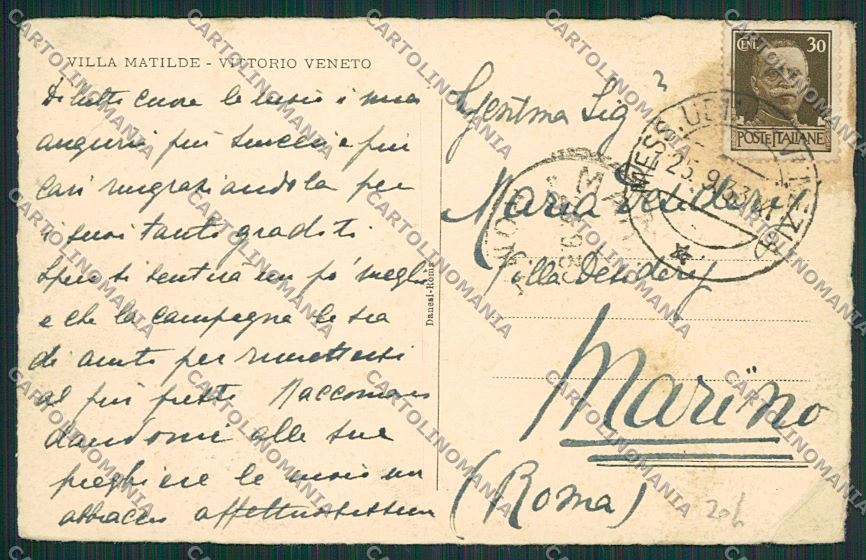 VILLA MATILDE - VITTORIO VENETO
Di tutto cuore le invio i miei
auguri più sinceri e più
cari ringraziandola per
i suoi tanto graditi
Spero si sentirà un po' meglio
e che la campagna le sia
di aiuto per rimettersi
al più presto Raccoman
dandomi alle sue
preghiere le invio un
abbraccio affettuosissimo
Danesi-Roma
CENT. 30
POSTE ITALIANE
25.9.33
Gentma Sig
Maria Desideri
Villa Desideri
Marino
(Roma)
206
CARTOLINOMANIA